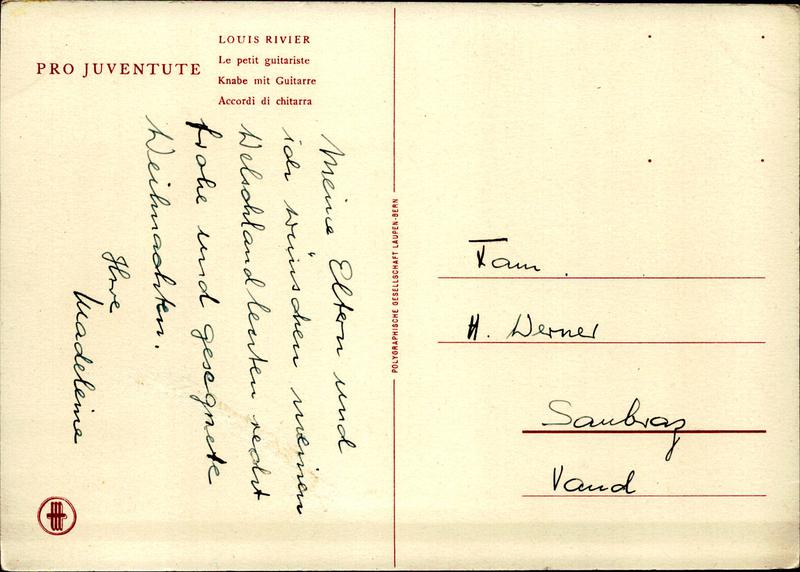 PRO JUVENTUTE
LOUIS RIVIER
Le petit guitariste
Knabe mit Guitarre
Accordi di chitarra
Meine Eltern und
ich wünschen meinen
Welschlandleuten recht
frohe und gesegnete
Weihnachten.
Ihre
Madeleine
POLYGRAPHISCHE GESELLSCHAFT LAUPEN-BERN
Fam.
H. Werner
Saubraz
Vaud